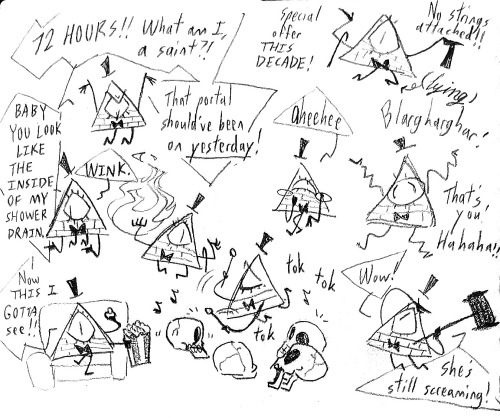 72 HOURS!! What am I,
a saint?!
Special
offer
THIS
DECADE!
No strings
attached!!
(lying)
BABY
YOU LOOK
LIKE
THE
INSIDE
OF MY
SHOWER
DRAIN.
That portal
should've been
on yesterday!
Aheehee
Blargharghar!
WINK.
That's
you!
Hahaha!!
Now
THIS I
GOTTA
see!!
tok tok
tok
Wow!
She's
still screaming!